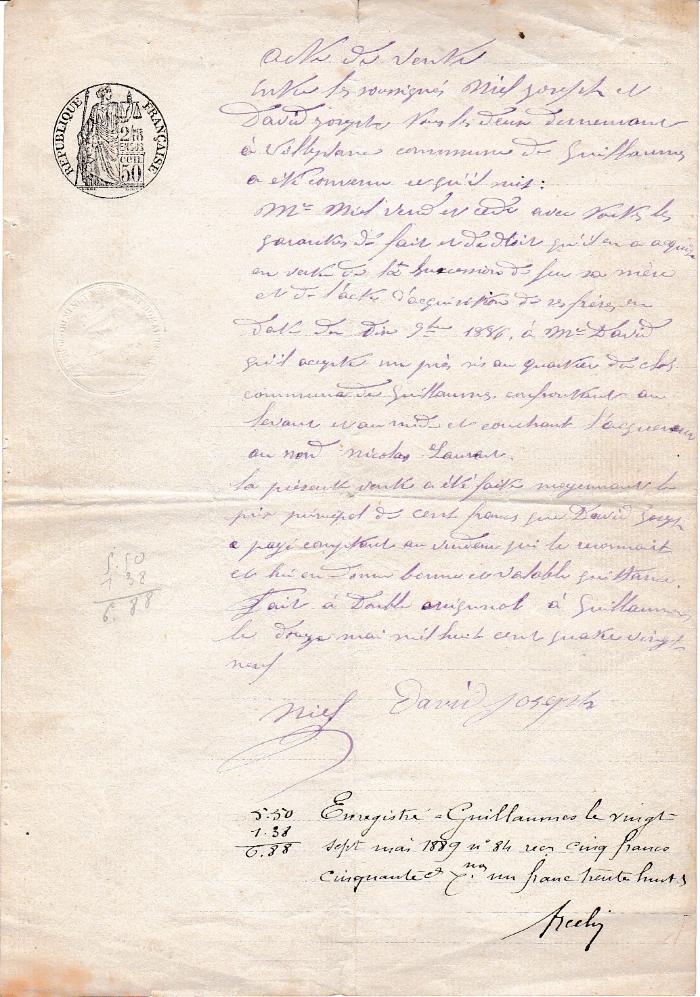 acte de vente
Entre les soussignés Niel Joseph et
David Joseph tous les deux demeurant
à Villeplane commune de Guillaumes
a été convenu ce qu'il suit :
Mr Niel vend et cède avec toutes les
garanties de fait et de droit qu'il en a acquis
en vertu de la succession de feu sa mère
et de l'acte d'acquisition de ses frères, en
date du dix 9bre 1886, à Mr David
qu'il accepte un près sis au quartier du clos
commune de Guillaumes, confrontant au
levant et au midi et couchant l'acquereur
au nord Nicolas Laurent.
la présente vente a été faite moyennant le
prix principal de cent francs que David Joseph
a payé comptant au vendeur qui le reconnait
et lui en donne bonne et valable quittance.
Fait à double original à Guillaumes
le douze mai mil huit cent quatre vingt
neuf
Niel David Joseph
RÉPUBLIQUE FRANÇAISE
2/10
EN SUS
CEN
50
5.50
1 38
6.88
5.50
1.38
6.88
Enregistré à Guillaumes le vingt
sept mai 1889 n° 84 reçu cinq francs
cinquante c un franc trente huit